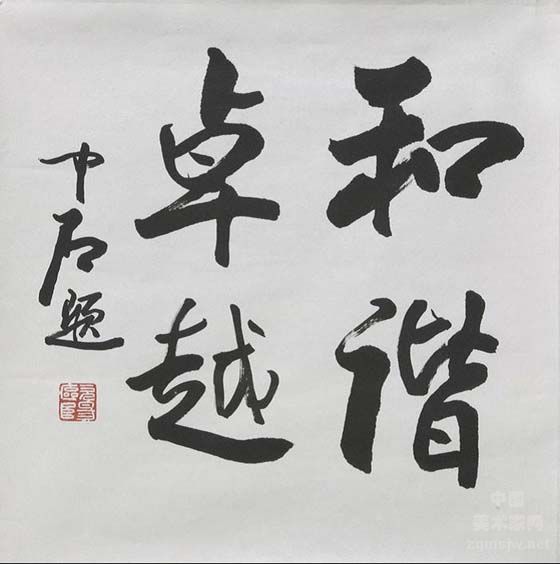 和谐
卓越
中石题
中国
美术家网
zgmsjw.net